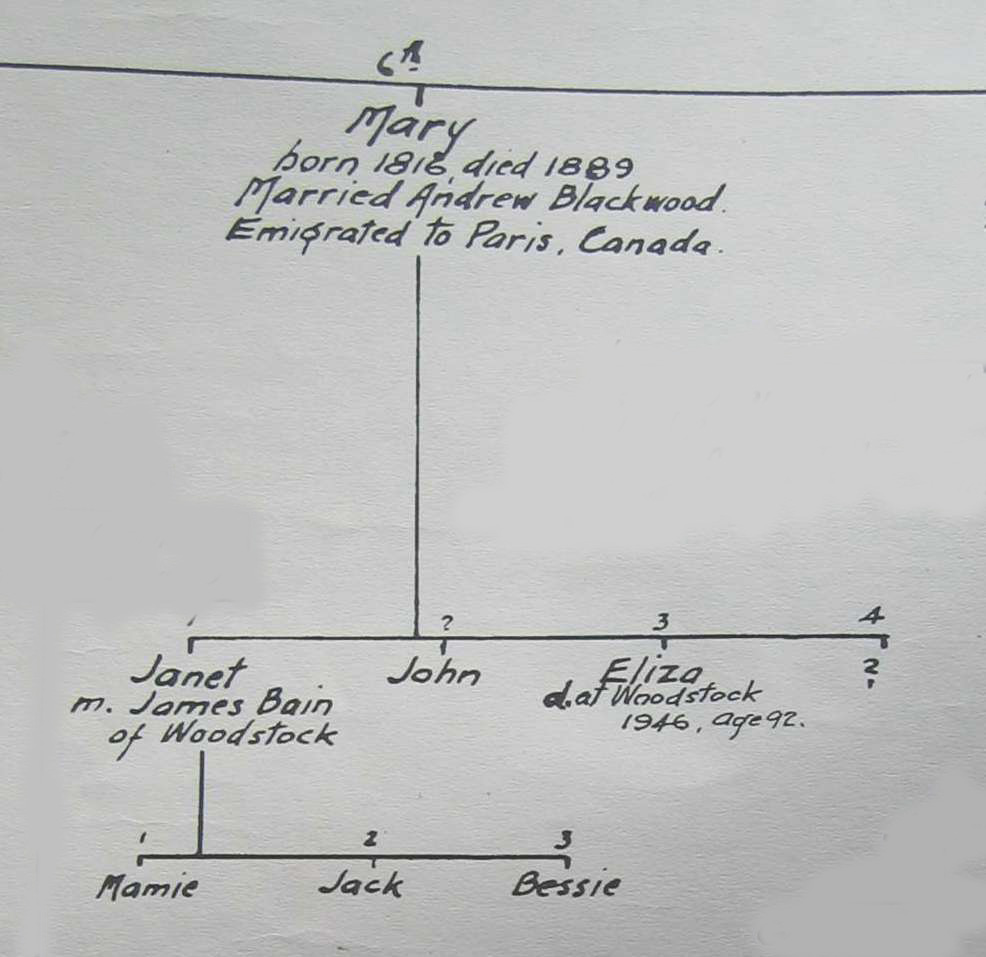 6th
Mary
born 1816, died 1889
Married Andrew Blackwood.
Emigrated to Paris, Canada.
? 3 4
Janet John Eliza ?
m. James Bain d. at Woodstock
of Woodstock 1946, age 92.
1 2 3
Mamie Jack Bessie